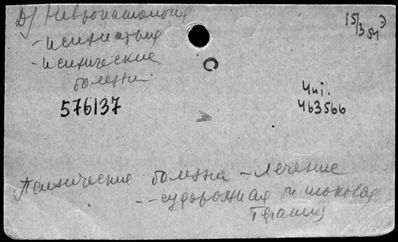 Д) Невропатология
15/3 54 Э
- психиатрия
- психические
болезни
С
576137
Чит.
463566
А
Психические болезни - лечение
-- судорожная и шоковая
терапия